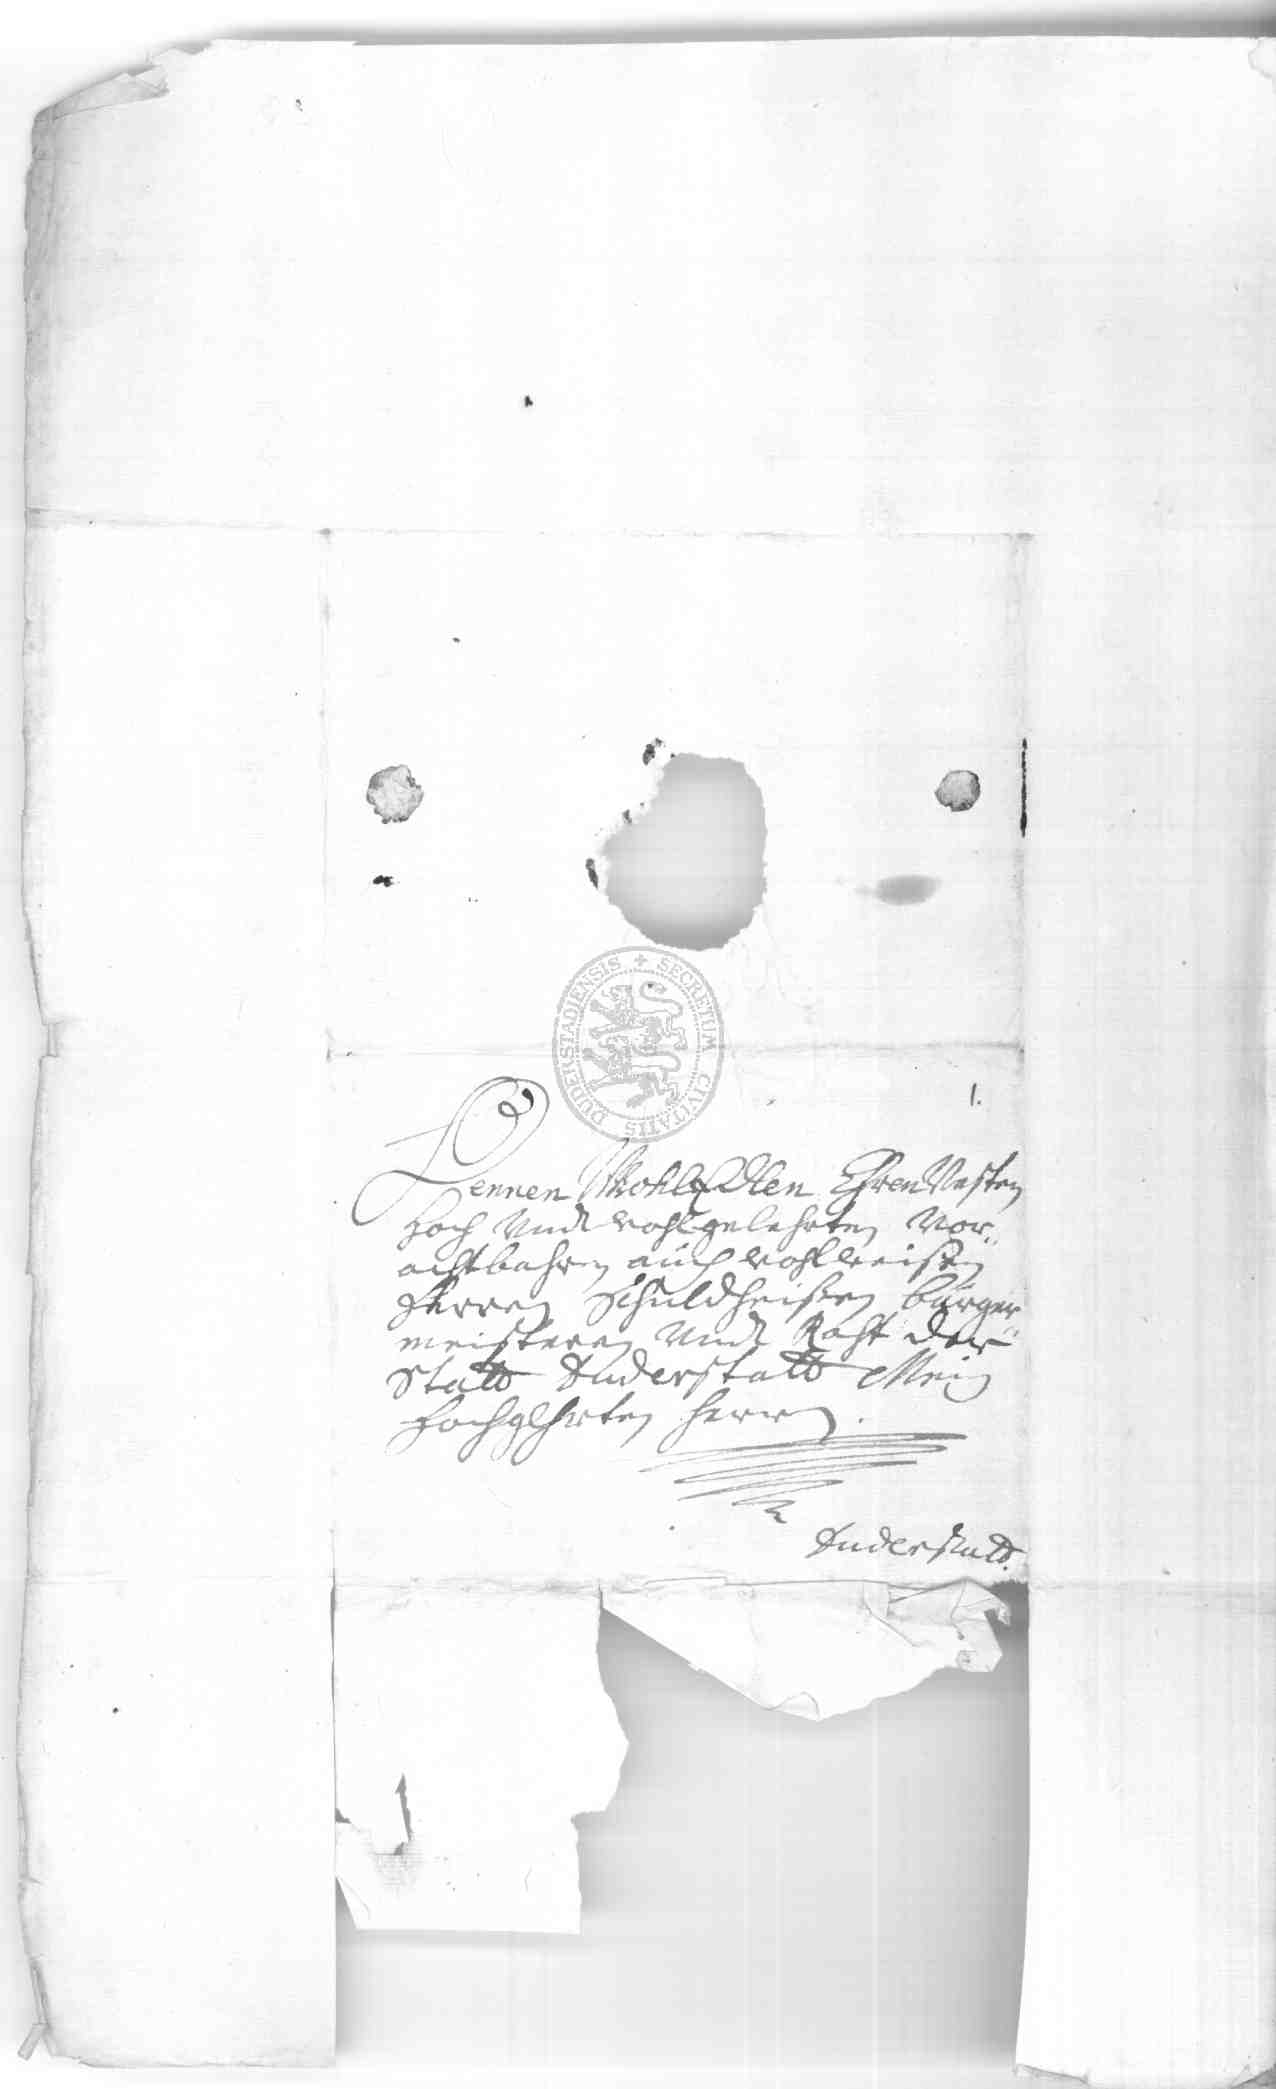 SECRETUM CIVITATIS DUDERSTADIENSIS
1.
Dennen WohlEdlen EhrenVesten
Hoch Undt wohlgelehrten Vor„
achtbahren auch wohlweisen
Herren Schuldheißen bürger„
meisteren Undt Raht der
Statt Duderstatt Mein
Hochgehrten Herren.
Duderstatt.